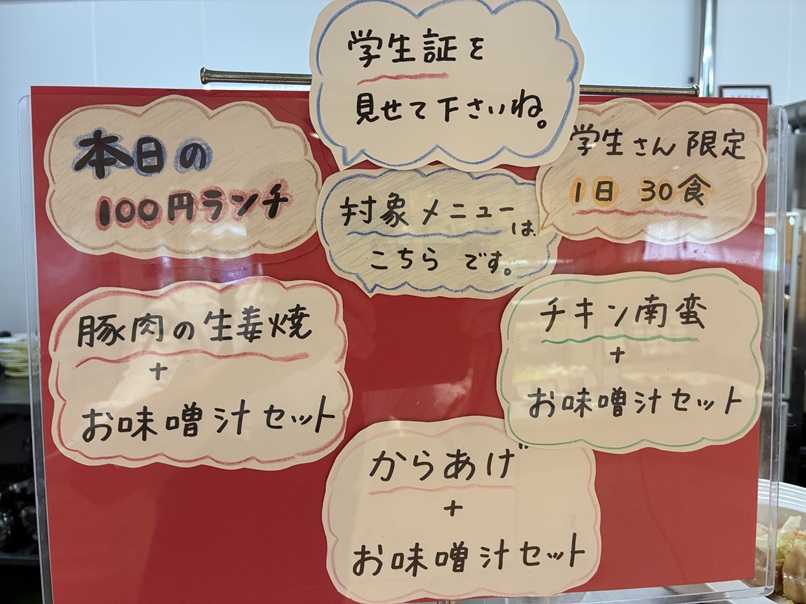 学生証を
見せて下さいね。
本日の
100円ランチ
対象メニューは、
こちらです。
学生さん限定
1日 30食
豚肉の生姜焼
+
お味噌汁セット
チキン南蛮
+
お味噌汁セット
からあげ
+
お味噌汁セット